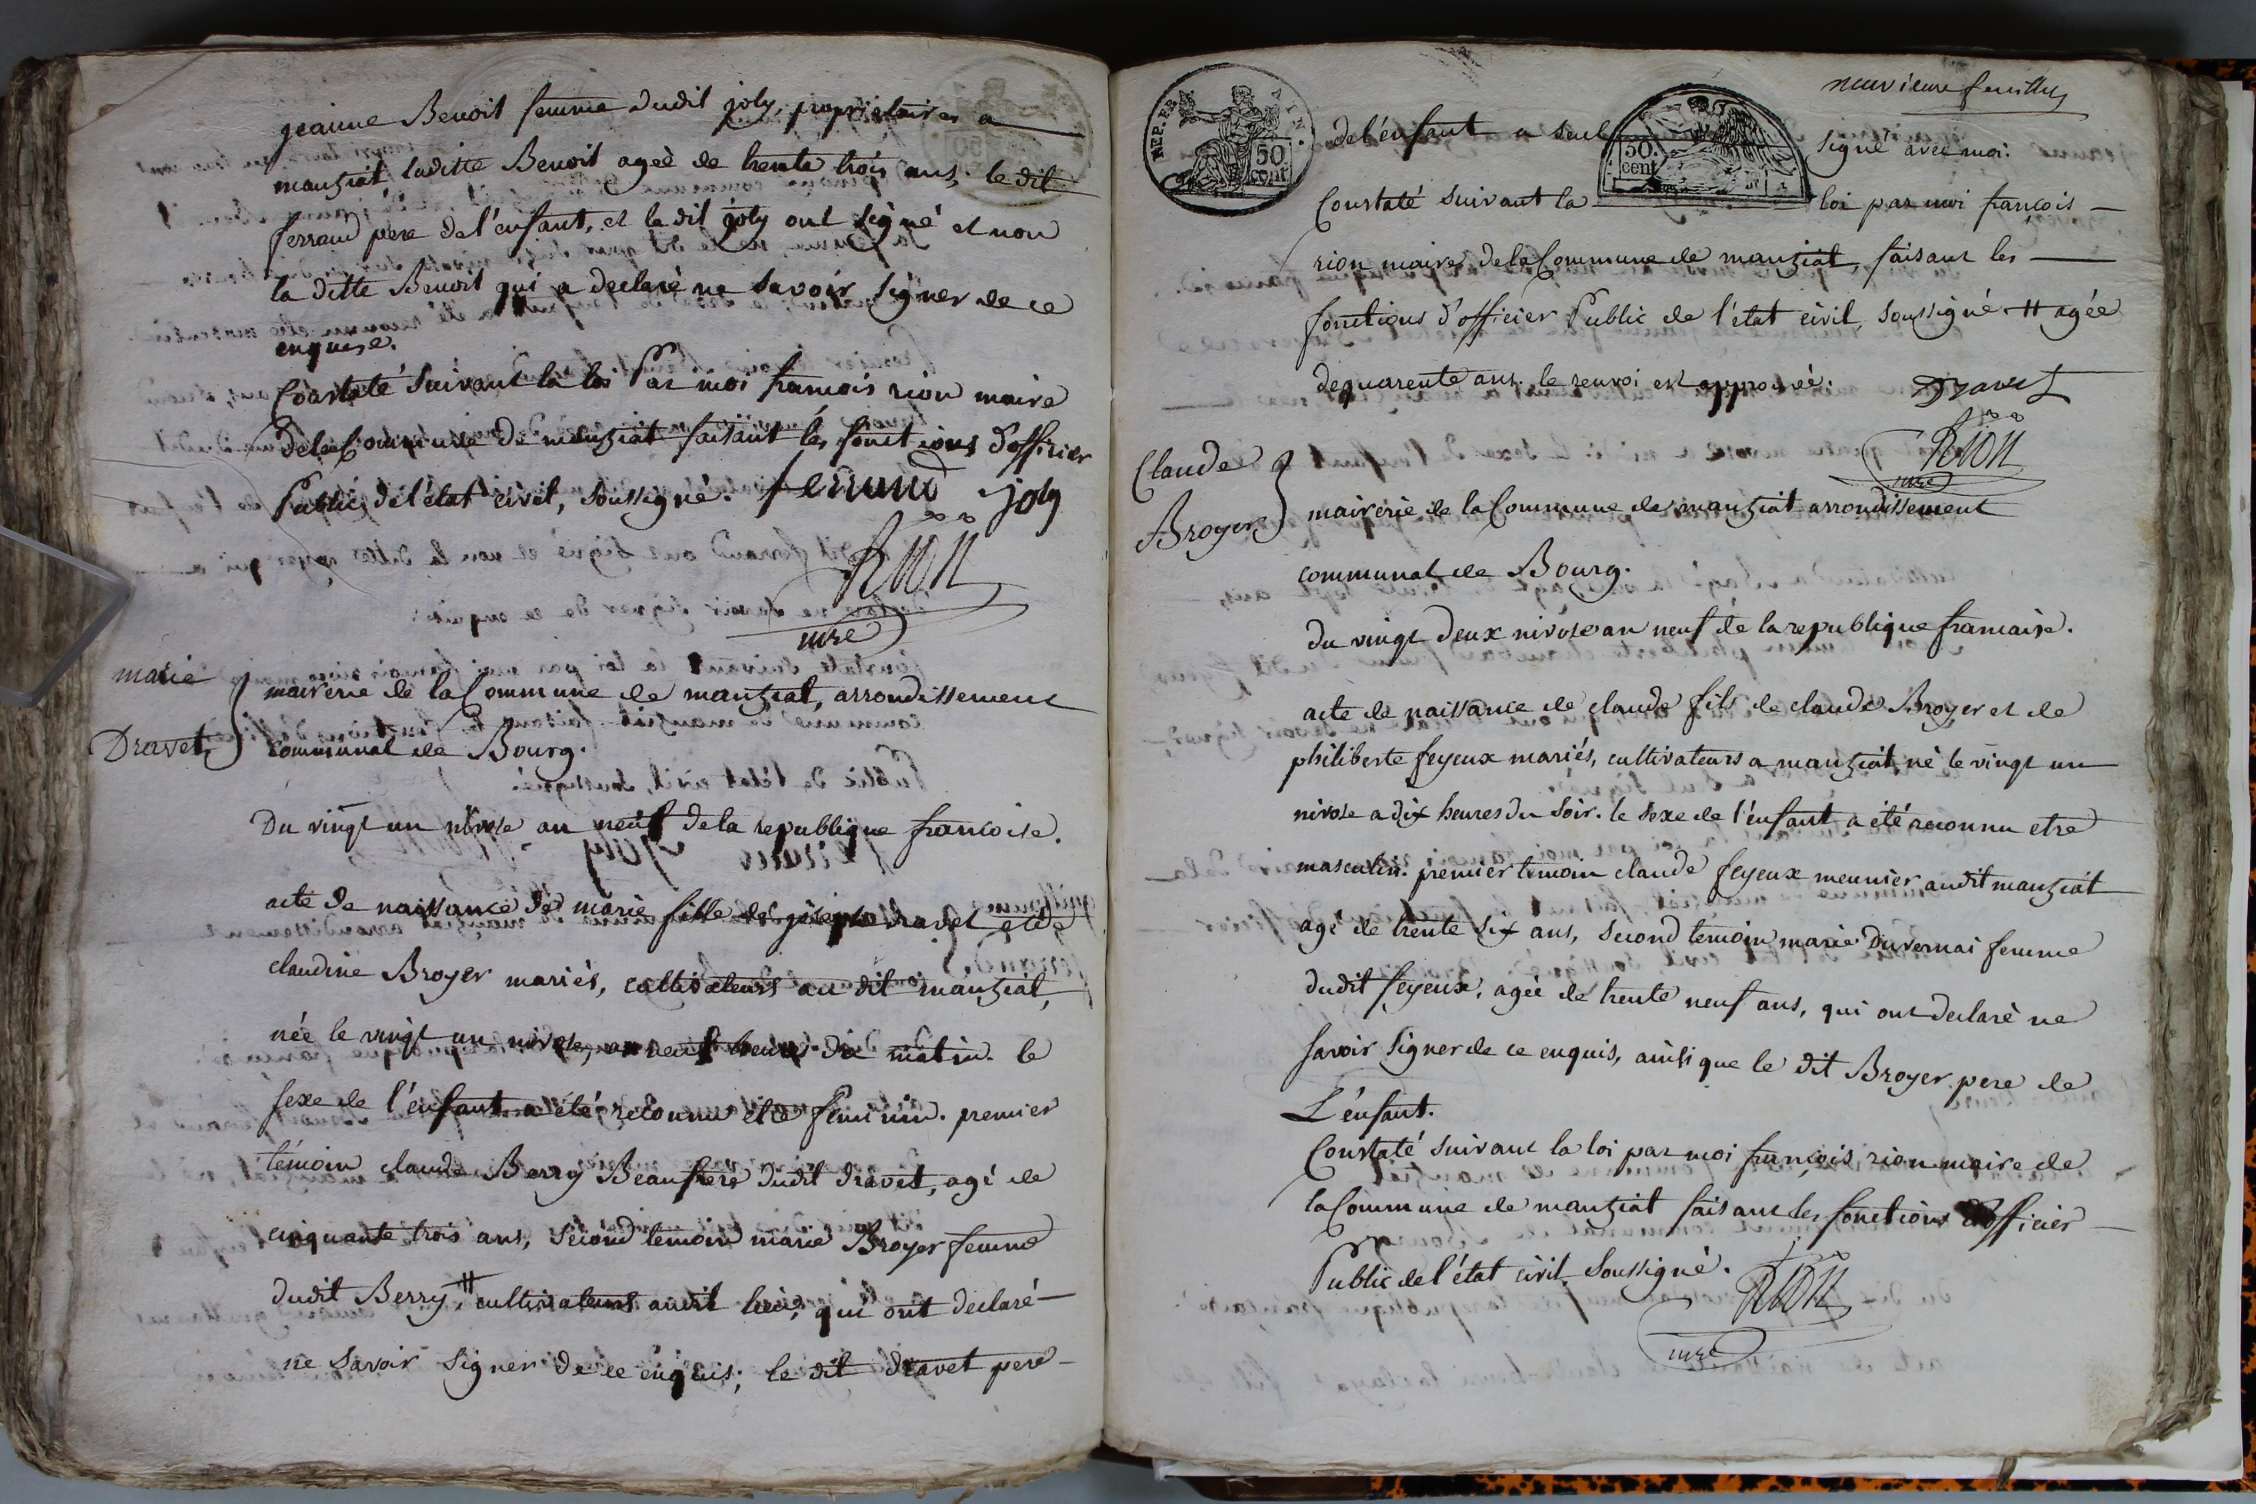 jeanne Benoit femme dudit joly, propriétaires a
manziat, laditte Benoit ageè de trente trois ans, le dit
ferrand pere de l'enfant, et le dit joly ont signé et non
la ditte Benoit qui a declarè ne savoir signer de ce
enquise.
Constaté suivant la loi Par moi francois rion maire
de la Commune de manziat faisant les fonctions d'officier
Public de l'état civil, soussigné. ferrand joly
Rion
mre
marie
Dravet
mairerie de la Commune de manziat, arrondissement
communal de Bourg.
Du vingt un nivose an neuf de la republique francoise.
acte de naissance de marie fille de joseph dravet et de
claudine Broyer mariés, cultivateurs au dit manziat,
née le vingt un nivose, a neuf heures du matin. le
sexe de l'enfant a été reconnu etre feminin. premier
témoin claude Berry Beaufrere dudit dravet, agé de
cinquante trois ans, second temoin marie Broyer femme
dudit Berry, # cultivateurs audit lieu, qui ont declaré
ne savoir signer de ce enquis; le dit dravet pere
neuvieme feuillet
REP. FRA
50 cent
50. cent
de l'enfant a seul signé avec moi.
Constaté suivant la loi par moi françois
rion maire de la Commune de manziat, faisant les
fonctions d'officier Public de l'état civil, soussigné # agée
de quarente ans. le renvoi est approuvé. Dravet
Rion
mre
Claude
Broyer
mairerie de la Commune de manziat arrondissement
communal de Bourg.
du vingt deux nivose an neuf de la republique francaise.
acte de naissance de claude fils de claude Broyer et de
philiberte feyeux mariés, cultivateurs a manziat né le vingt un
nivose a dix heures du soir. le sexe de l'enfant a été reconnu etre
masculin. premier temoin claude feyeux meunier audit manziat
agé de trente six ans, second temoin marie Duvernai femme
dudit feyeux, ageè de trente neuf ans, qui ont declarè ne
savoir signer de ce enquis, ainsi que le dit Broyer pere de
L'enfant.
Constaté suivant la loi par moi françois rion maire de
la Commune de manziat faisant les fonctions d'officier
Public de l'état civil, soussigné.
Rion
mre